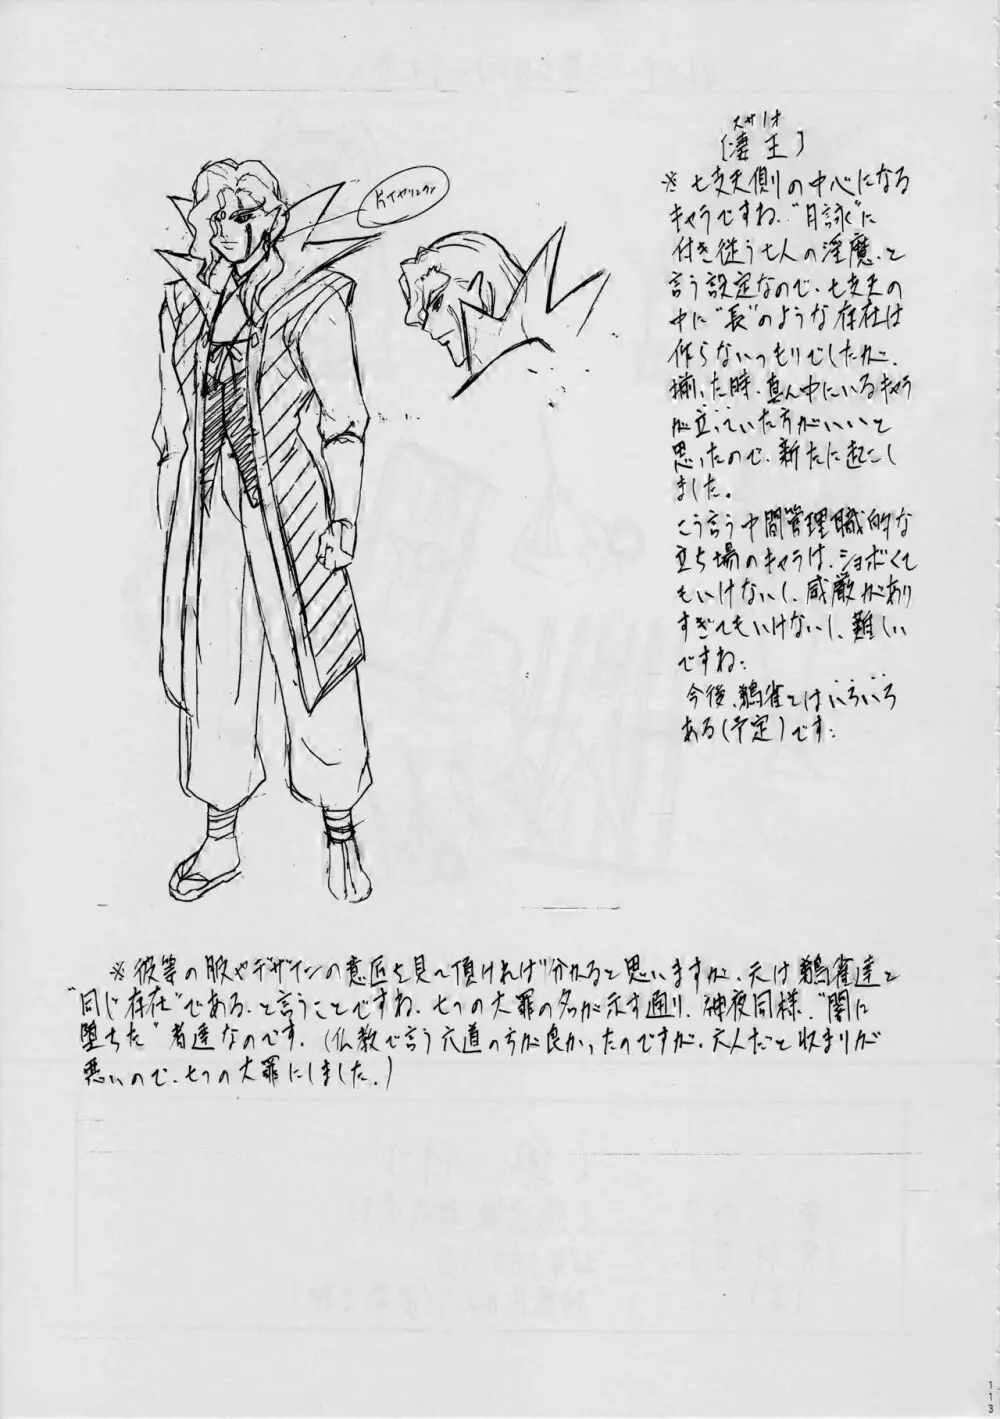 スサノオ
[凄王]
片イヤリング
※ 七支夫側の中心になる
キャラですね、"月詠"に
付き従う七人の淫魔、と
言う設定なので、七支夫の
中に"長"のような存在は
作らないつもりでしたが、
揃った時、真ん中にいるキャラ
が立っていた方がいいと
思ったので、新たに起こし
ました。
こう言う中間管理職的な
立ち場のキャラは、ショボくて
もいけないし、威厳があり
すぎてもいけないし、難しい
ですね…
今後、鵺雀とはいろいろ
ある(予定)です…
※ 彼等の服やデザインの意匠を見て頂ければ分かると思いますが、元は鵺雀達と
"同じ存在"である、と言うことですね、七つの大罪の名が示す通り、神夜同様、"闇に
堕ちた"者達なのです。(仏教で言う六道の方が良かったのですが、六人だと収まりが
悪いので、七つの大罪にしました。)
113